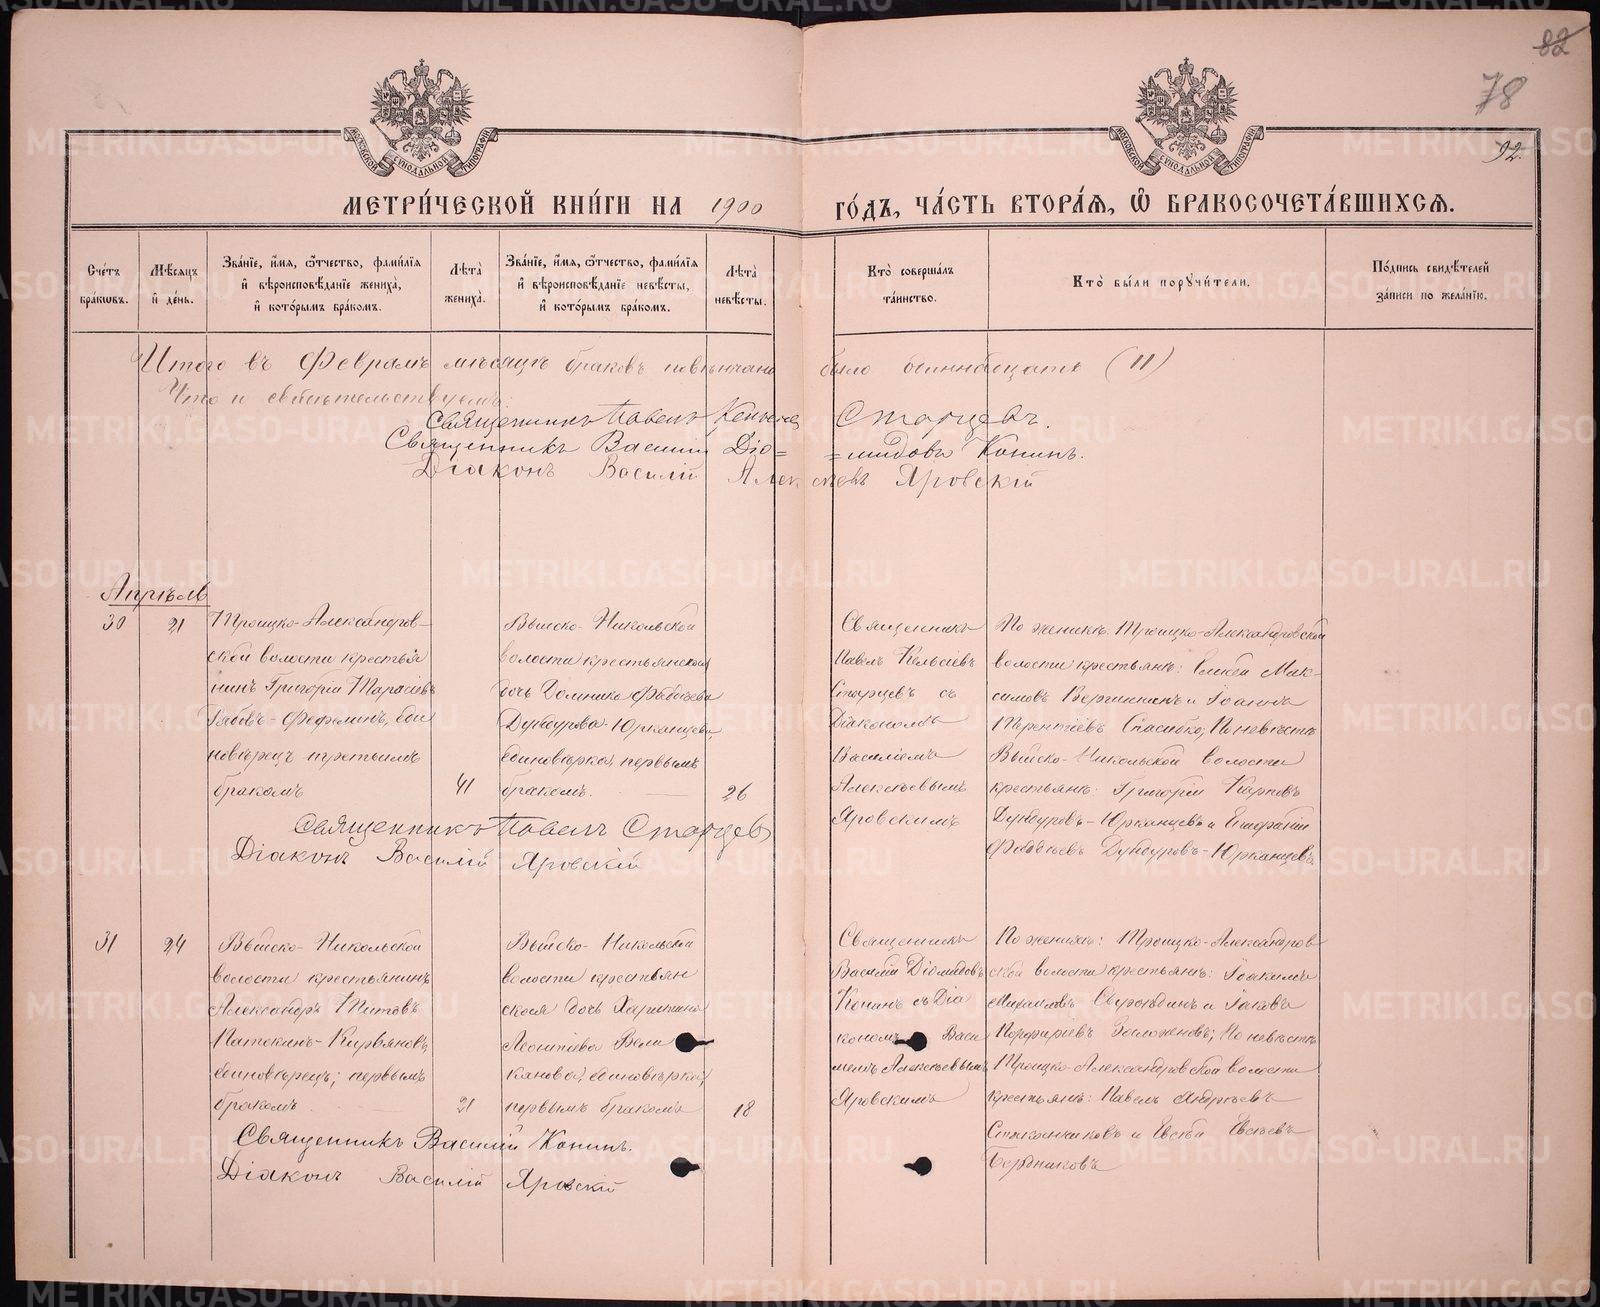 82
78
92.
МОСКОВСКОЙ СѴНОДАЛЬНОЙ ТИПОГРАФІИ
МОСКОВСКОЙ СѴНОДАЛЬНОЙ ТИПОГРАФІИ
МЕТРИ́ЧЕСКОЙ КНИ́ГИ НА 1900 ГО́ДЪ, ЧА́СТЬ ВТОРА́Я, Ѽ БРАКОСОЧЕТА́ВШИХСЯ.
Сче́тъ бра́кѡвъ.
Мѣ́сяцъ и҆ де́нь.
Зва́нїе, и҆́мя, ѻ҆́тчество, фами́лїя и҆ вѣроисповѣ́данїе жениха̀, и҆ кото́рымъ бра́комъ.
Лѣта̀ жениха̀.
Зва́нїе, и҆́мя, ѻ҆́тчество, фами́лїя и҆ вѣроисповѣ́данїе невѣ́сты, и҆ кото́рымъ бра́комъ.
Лѣта̀ невѣ́сты.
Кто̀ соверша́лъ та́инство.
Кто̀ бы́ли порꙋчи́тели.
По́дпись свидѣ́телей за́писи по жела́нїю.
Итого въ Февралѣ мѣсяцѣ браковъ повѣнчано было одиннадцать (11)
Что и свидѣтельствуемъ:
Священникъ Павелъ Старцевъ.
Священникъ Василій Діо= =мидовъ Конинъ.
Діаконъ Василій Алексѣевъ Яровскій
Апрѣль
30
21
Троицко-Александров-
ской волости крестья
нинъ Григорій Тарасіевъ
единовѣрецъ третьимъ
бракомъ
41
Выйско-Никольской
волости крестьянская
дочь Домника
Дунбурова-Юрканцева,
единовѣрка, первымъ
бракомъ.
26
Священникъ
Павелъ Кельсіевъ
Старцевъ съ
Діакономъ
Василіемъ
Алексѣевымъ
Яровскимъ
По женихѣ: Троицко-Александровской
волости крестьяне: Елисей Мак-
симовъ и Іоаннъ
Терентіевъ Спасибко; По невѣстѣ
Выйско-Никольской волости
крестьяне: Григорій Карповъ
Дунбуровъ-Юрканцевъ и
Дунбуровъ-Юрканцевъ
Священникъ Павелъ Старцевъ
Діаконъ Василій Яровскій
31
24
Выйско-Никольской
волости крестьянинъ
Александръ Титовъ
Патокинъ-Кирьяновъ,
единовѣрецъ; первымъ
бракомъ
21
Выйско-Никольской
волости крестьян
ская дочь Харитина
Леонтіева Вели
канова, единовѣрка,
первымъ бракомъ
18
Священникъ
Василій Діомидовъ
Конинъ съ Діа
кономъ Васи
ліемъ Алексѣевымъ
Яровскимъ
По женихѣ: Троицко-Александров
ской волости крестьяне: Іоакимъ
Михаиловъ и Іаковъ
Порфиріевъ; По невѣстѣ
Троицко-Александровской волости
крестьяне: Павелъ Андреевъ
и Евсеевъ
Бердниковъ
Священникъ Василій Конинъ.
Діаконъ Василій Яровскій
METRIKI.GASO-URAL.RU